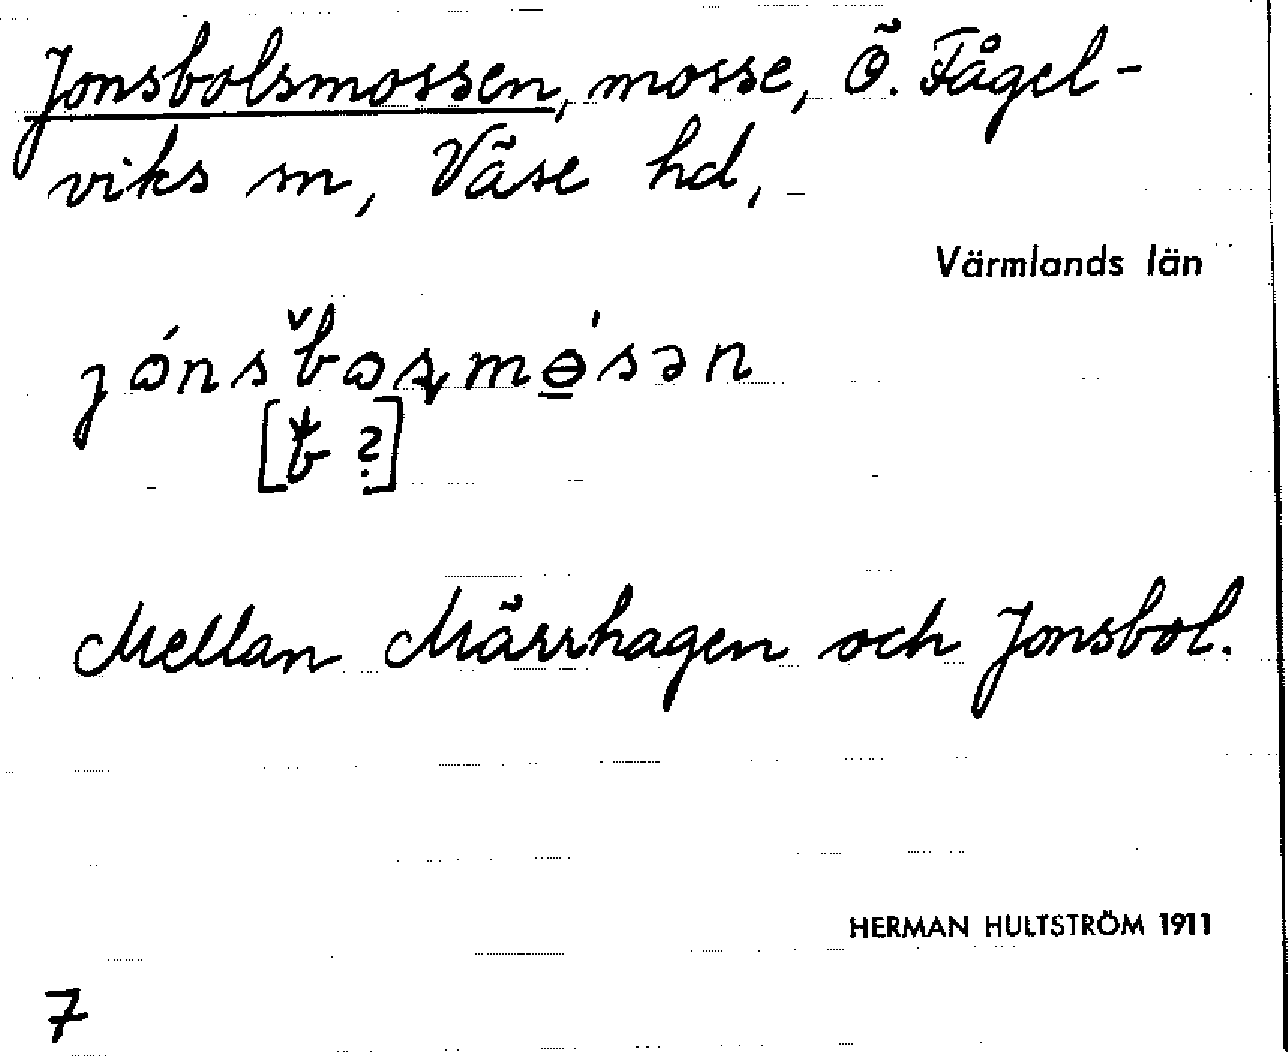 Jonsbolsmossen, mosse, Ö. Fågel-
viks sn, Väse hd,
Värmlands län
[b ?]
Mellan Märrhagen och Jonsbol.
HERMAN HULTSTRÖM 1911
7